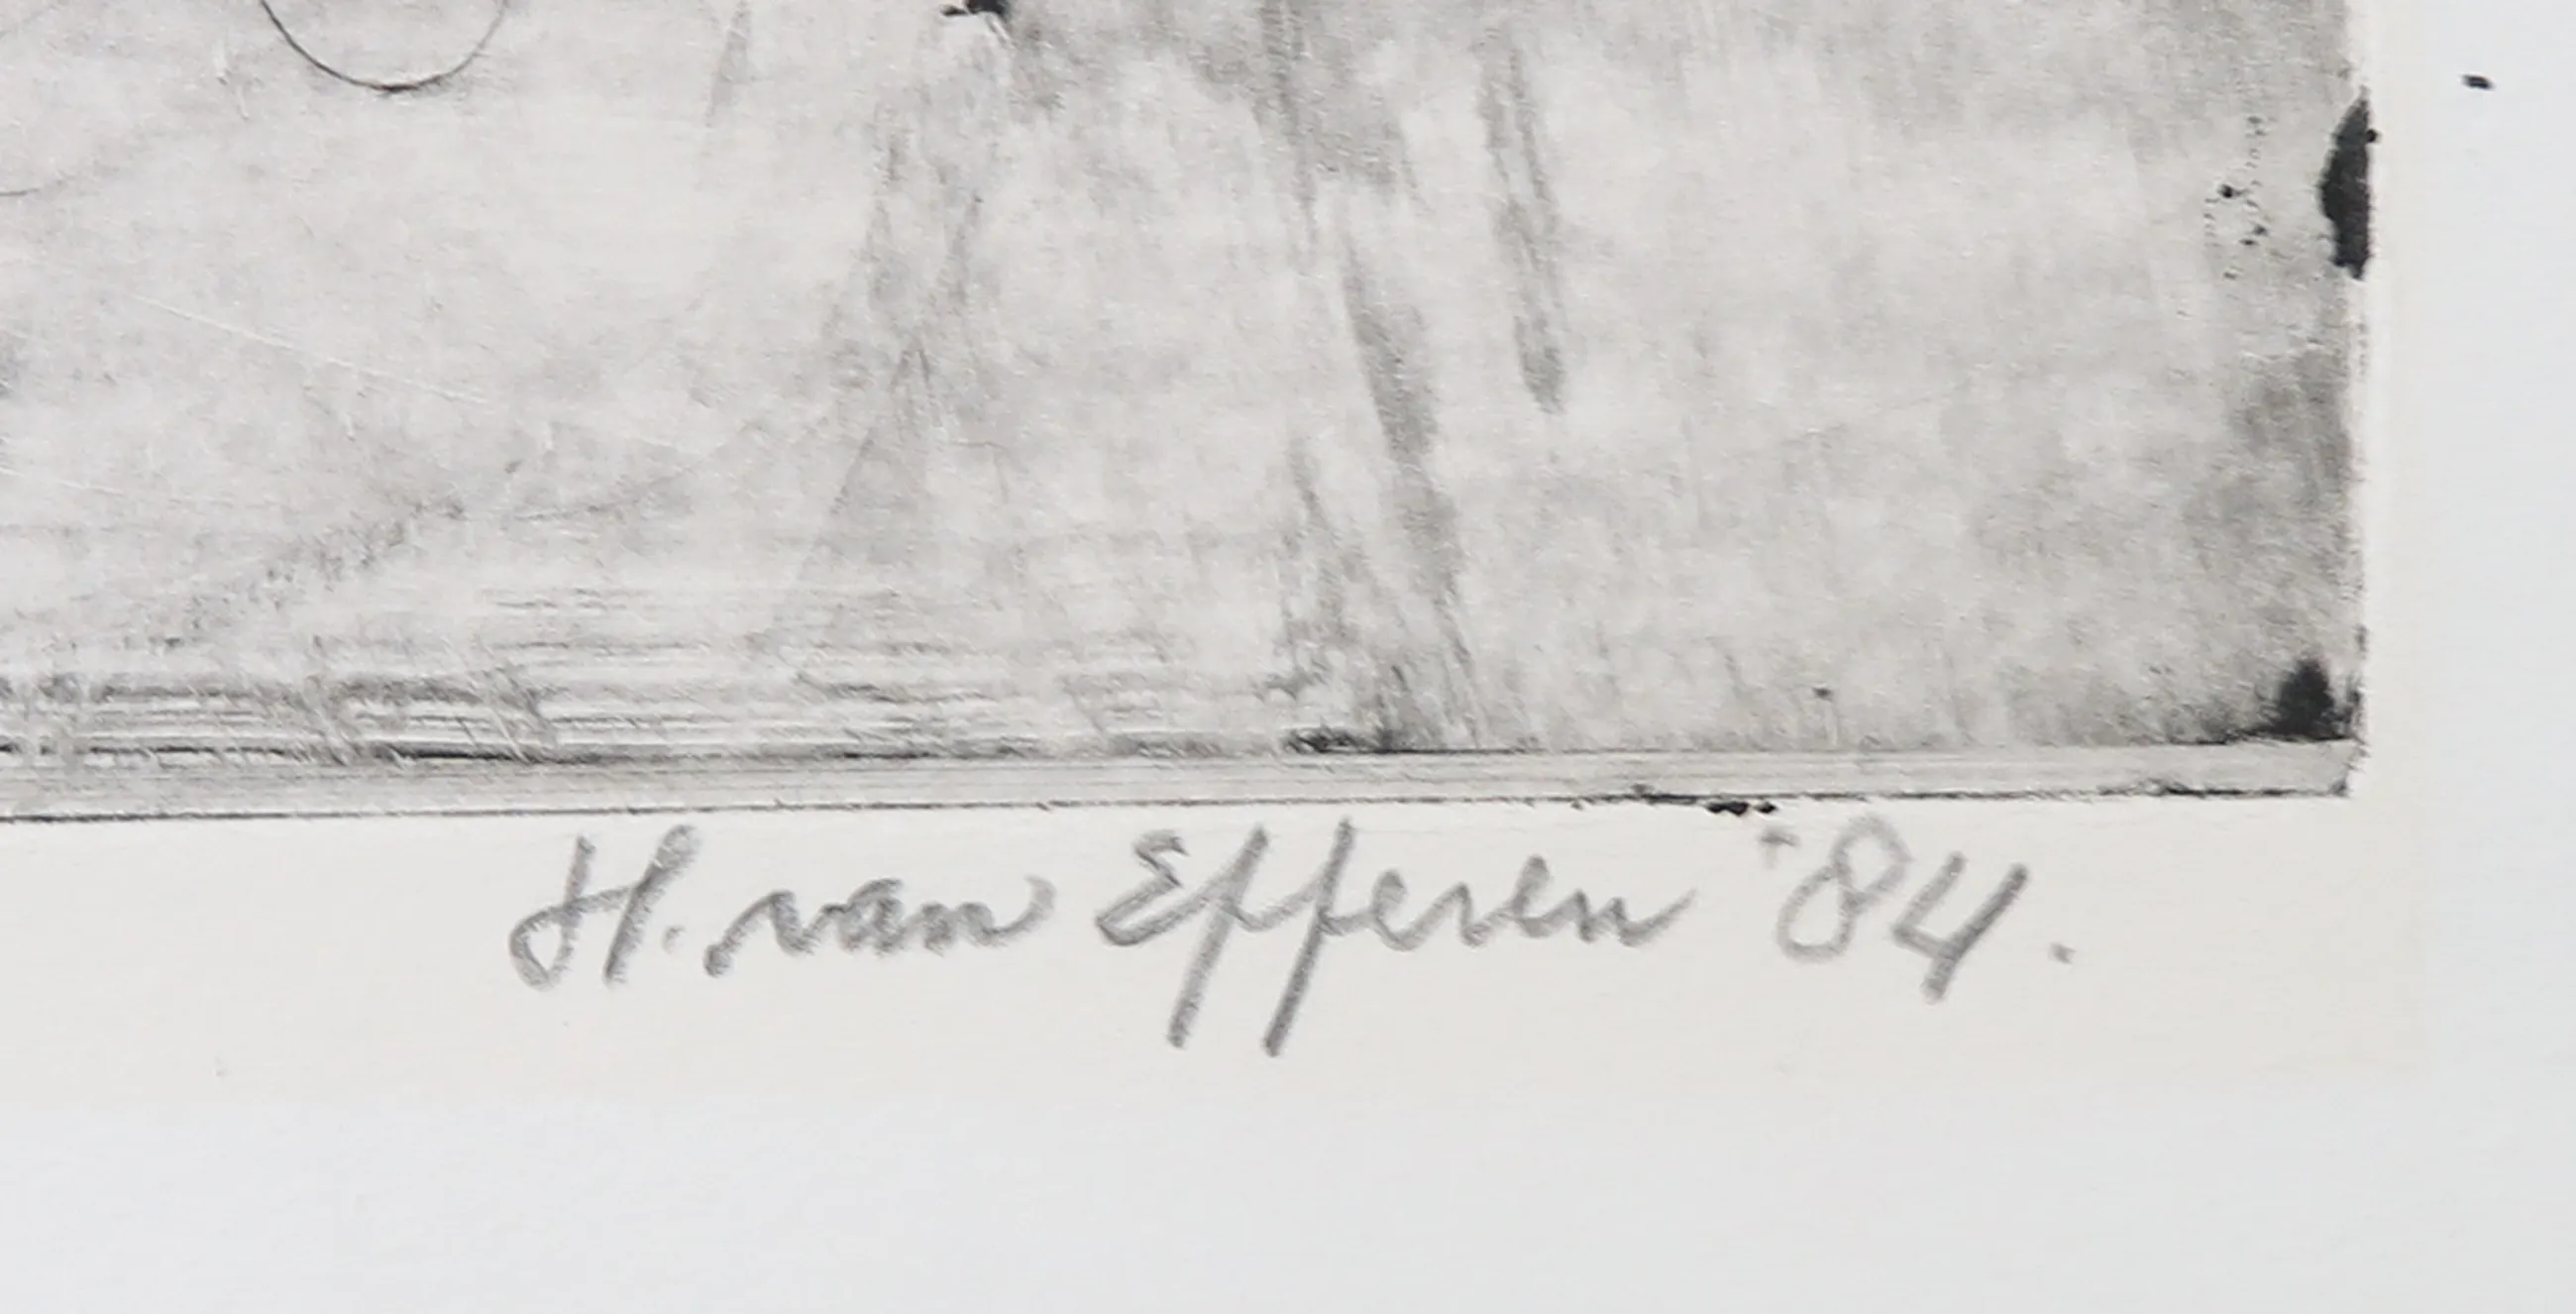 H. van Efferen '84.